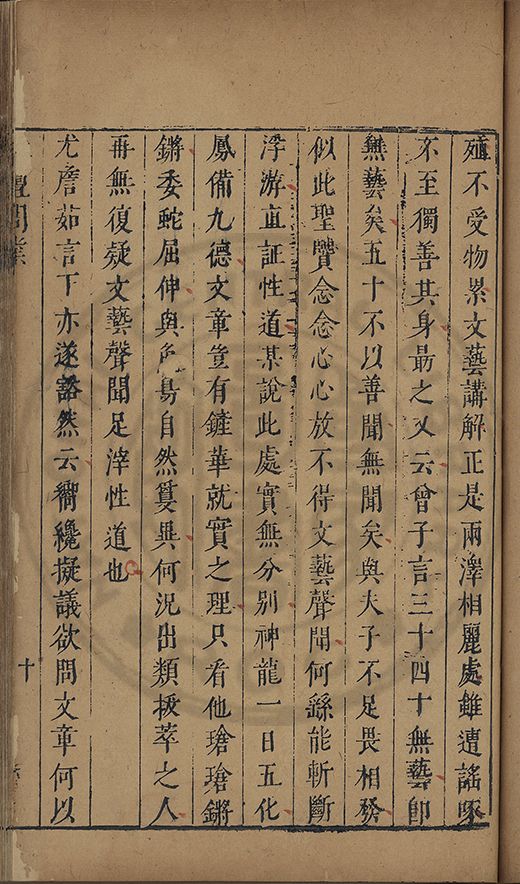 殖不受物累文藝講解正是兩澤相麗處雖遭謠啄
不至獨善其身最之又云曾子言三十四十無藝即
無藝矣五十不以善聞無聞矣與夫子不足畏相發
似此聖贒念念心心放不得文藝聲聞何繇能斬斷
浮游直証性道某說此處實無分別神龍一日五化
鳳備九德文章豈有鏟華就實之理只看他瑲瑲鏘
鏘委蛇屈伸與龜易自然敻異何況出類拔萃之人
再無復疑文藝聲聞足滓性道也
尤詹茹言下亦遂豁然云嚮纔擬議欲問文章何以
十